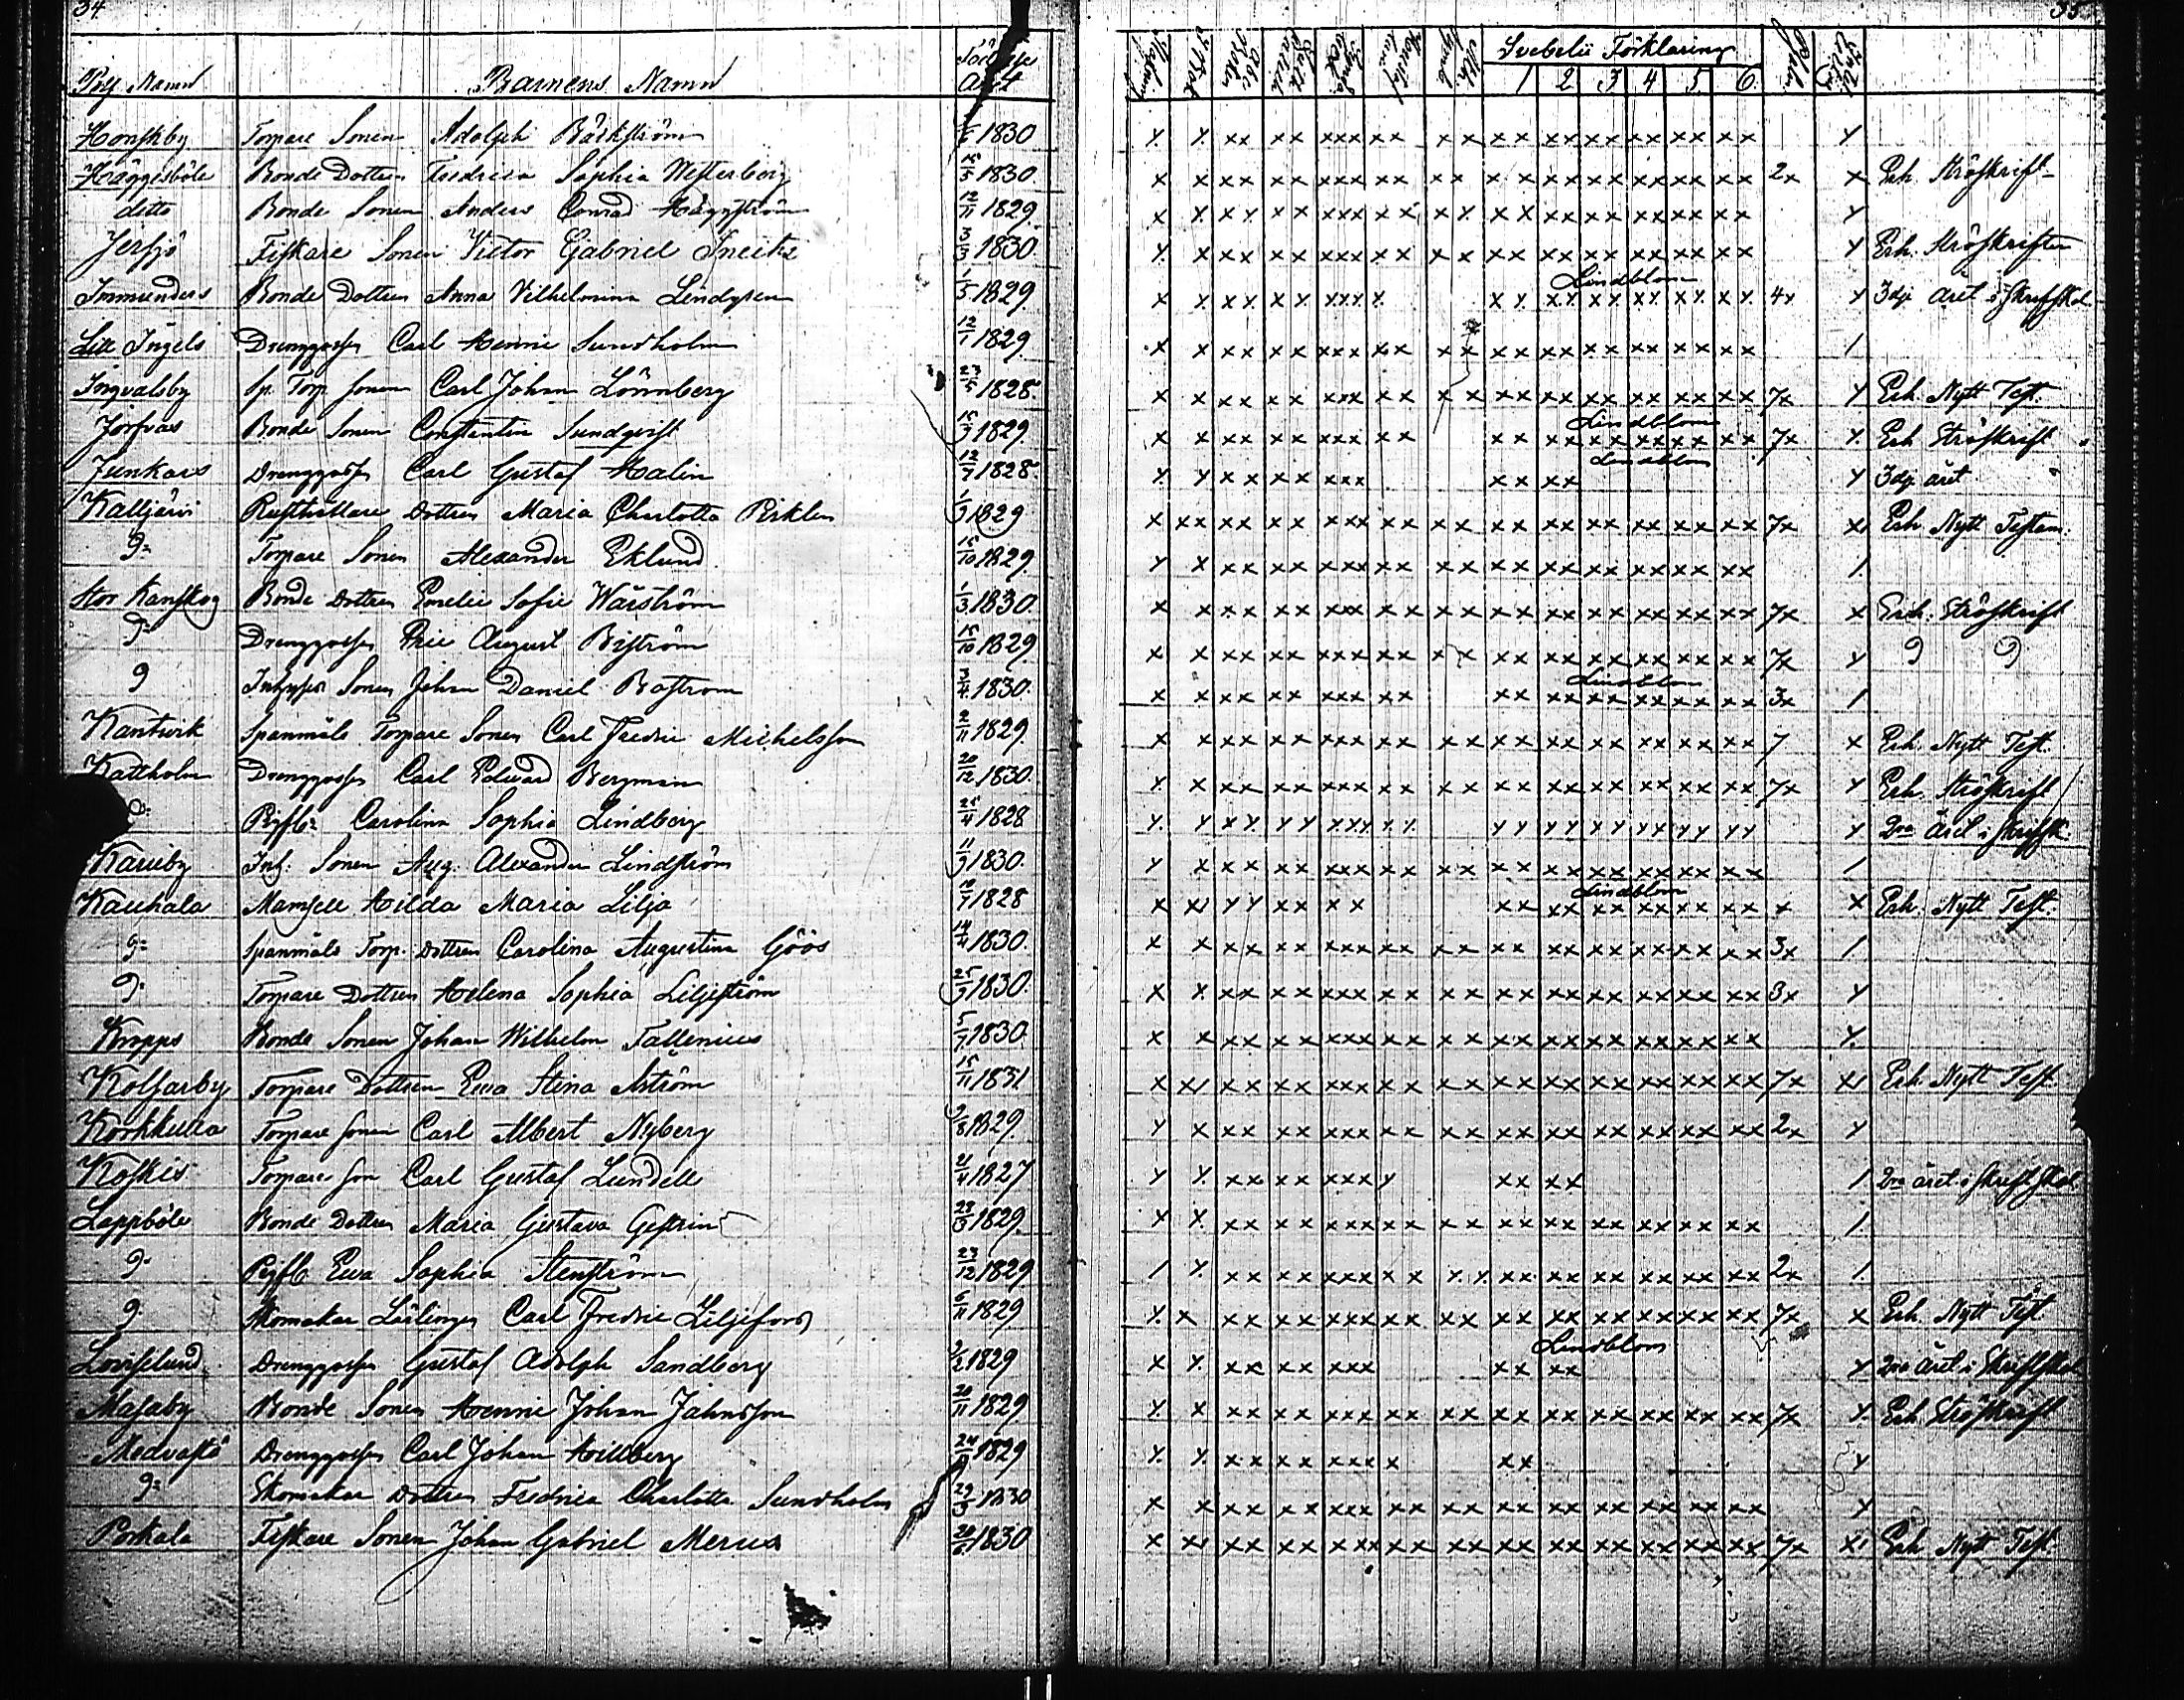 34
Byg Namn Barnens Namn Födelse Året
Honskby Torpare Sonen Adolph Bäckström 1830
Häggesböle Bonde Dottren Fredrica Sophia Westerberg 15/5 1830
ditto Bonde Sonen Anders Conrad Häggström 12/11 1829
Jersjö Fiskare Sonen Victor Gabriel Sneitz 3/3 1830
Immunders Bonde Dottren Anna Vilhelmina Lindgren 1/5 1829
Lill Ingels Drenggosse Carl Henric Sundholm 12/1 1829
Ingvalsby Sp. Torp. Sonen Carl Johan Lönnberg 23/5 1828
Jorfvas Bonde Sonen Constantin Sundqvist 15/9 1829
Junkars Drenggosse Carl Gustaf Malin 12/7 1828
Kalljärvi Rusthållare Dottren Maria Charlotta 1/9 1829
Do Torpare Sonen Alexander Eklund 15/10 1829
Stor Kanskog Bonde Dottren Emelie Sofie Wärström 1/3 1830
Do Drenggosse Eric August Biström 15/10 1829
D Inhyses Sonen Johan Daniel Boström 3/4 1830
Kantvik Spanmåls Torpare Sonen Carl Fredric Michelsson 2/11 1829
Kattholm Drenggosse Carl Edward Bergman 20/12 1830
Do Pigfl: Carolina Sophia Lindberg 25/4 1828
Karuby Inh. Sonen Aug. Alexander Lindström 11/9 1830
Kauhala Mamsell Hilda Maria Lilja 10/7 1828
Do Spanmåls Torp. Dottren Carolina Augustina Göös 14/4 1830
Do Torpare Dottren Helena Sophia Liljeström 25/9 1830
Kropps Bonde Sonen Johan Wilhelm Tallenius 5/7 1830
Kolsarby Torpare Dottren Ewa Stina Åström 15/11 1831
Korkkulla Torpare Sonen Carl Albert Nyberg 9/8 1829
Koskis Torpare Son Carl Gustaf Lundell 21/4 1827
Lappböle Bonde Dottren Maria Gustava Gestrin 28/3 1829
Do Pigfl: Ewa Sophia Stenström 23/12 1829
D Skomakar Lärlingen Carl Fredric Liljefors 6/11 1829
Loviselund Drenggosse Gustaf Adolph Sandberg 9/2 1829
Masaby Bonde Sonen Henric Johan Jahnsson 20/11 1829
Medvastö Drenggosse Carl Johan Hillberg 1829
Do Skomakar Dottren Fredrica Charlotta Sundholm 29/3 1830
Porkala Fiskare Sonen Johan Gabriel Mercus 20/6 1830
35
Svebelii Förklaring
1 2 3 4 5 6
x x xx xx xxx xx xx xx xx xx xx xx xx x
x x xx xx xxx xx xx xx xx xx xx xx xx 2x x Erh. Ströskrift
x x xx xx xxx xx xx xx xx xx xx xx xx x
x x xx xx xxx xx xx xx xx xx xx xx xx x Erh. Ströskrifter
Lindblom
x x xx xx xxx x xx xx xx xx xx xx 4x x 3dje året i Skriftskol.
x x xx xx xxx xx xx xx xx xx xx xx xx /
x x xx xx xxx xx xx xx xx xx xx xx xx 7x x Erh. Nytt Test.
Lindblom
x x xx xx xxx xx xx xx xx xx xx xx 7x x Erh Ströskrift
Lindblom
x x xx xx xxx xx xx x 3dje året
x xx xx xx xxx xx xx xx xx xx xx xx xx 7x x Erh Nytt Testam.
x x xx xx xxx xx xx xx xx xx xx xx xx /
x x xx xx xxx xx xx xx xx xx xx xx xx 7x x Erh. Ströskrift
x x xx xx xxx xx xx xx xx xx xx xx xx 7x x D D
Lindblom
x x xx xx xxx xx xx xx xx xx xx xx 3x /
x x xx xx xxx xx xx xx xx xx xx xx xx 7 x Erh. Nytt Test.
x x xx xx xxx xx xx xx xx xx xx xx xx 7x x Erh. Ströskrift
x x xx xx xxx xx xx xx xx xx xx xx x 2dra Året i Skriftsk
x x xx xx xxx xx xx xx xx xx xx xx xx /
Lindblom
x x xx xx xx xx xx xx xx xx xx x x Erh. Nytt Test.
x x xx xx xxx xx xx xx xx xx xx xx xx 3x /
x x xx xx xxx xx xx xx xx xx xx xx xx 3x x
x x xx xx xxx xx xx xx xx xx xx xx xx x
x x xx xx xxx xx xx xx xx xx xx xx xx 7x x Erh. Nytt Test
x x xx xx xxx xx xx xx xx xx xx xx xx 2x x
x x xx xx xxx x xx xx / 2dra året i Skriftskol
x x xx xx xxx xx xx xx xx xx xx xx xx /
/ x xx xx xxx xx xx xx xx xx xx xx xx 2x /
x x xx xx xxx xx xx xx xx xx xx xx xx 7x x Erh. Nytt Test
Lindblom
x x xx xx xxx xx xx x 2dra året i Skriftskol
x x xx xx xxx xx xx xx xx xx xx xx xx 7x x Erh Ströskrift
x x xx xx xxx x xx x
x x xx xx xxx xx xx xx xx xx xx xx xx x
x x xx xx xxx xx xx xx xx xx xx xx xx 7x x Erh Nytt Test